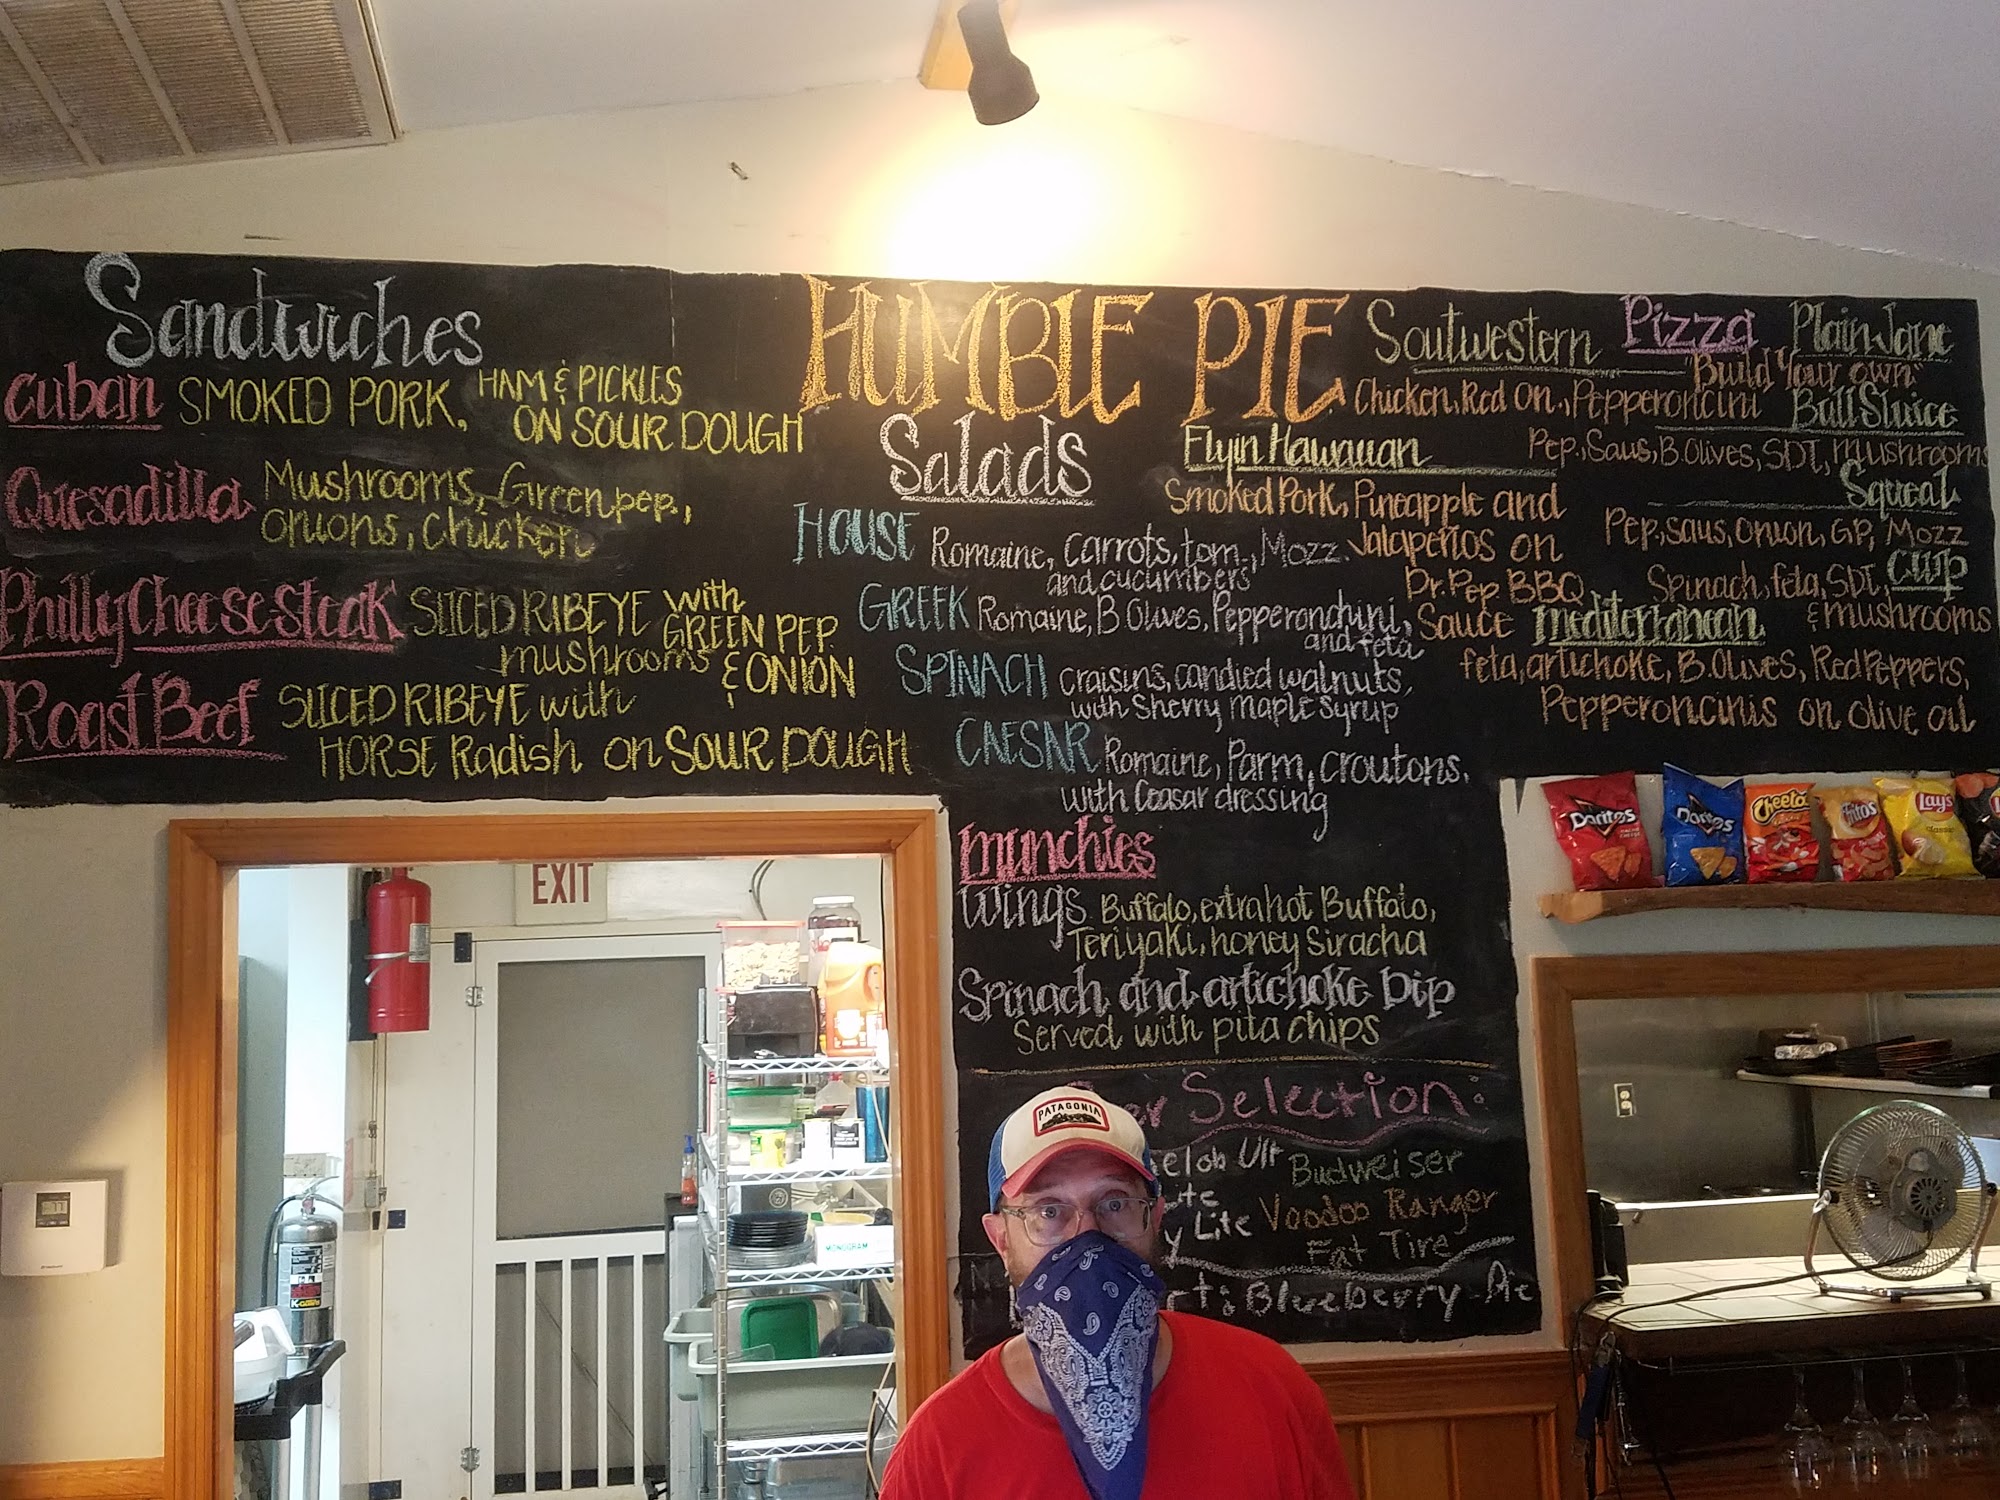 Sandwiches
Cuban SMOKED PORK, HAM & PICKLES
ON SOUR DOUGH
Quesadilla Mushrooms, Green pep.,
onions, chicken
Philly Cheese-steak SLICED RIBEYE with
GREEN PEP.
mushrooms & ONION
Roast Beef SLICED RIBEYE with
HORSE Radish on SOUR DOUGH
HUMBLE PIE
Salads
HOUSE Romaine, carrots, tom., Mozz.
and cucumbers
GREEK Romaine, B. Olives, Pepperonchini,
and feta
SPINACH craisins, candied walnuts,
with Sherry maple syrup
CAESAR Romaine, Parm, croutons,
with Ceasar dressing
munchies
Wings Buffalo, extra hot Buffalo,
Teriyaki, honey Siracha
Spinach and artichoke Dip
Served with pita chips
Selection:
Ult Budweiser
Lite Voodoo Ranger
Fat Tire
Blueberry Pie
Pizza
Soutwestern
Chicken, Red On., Pepperoncini
Plain Jane
"Build Your own"
Bull Sluice
Pep., Saus, B. Olives, SDT, mushrooms
Flyin Hawaiian
Smoked Pork, Pineapple and
Jalapeños on
Dr. Pep BBQ
Sauce
Squeal
Pep, saus, onion, GP, Mozz
Cup
Spinach, feta, SDT,
& mushrooms
mediterranean
feta, artichoke, B. Olives, Red Peppers,
Pepperoncinis on olive oil
Doritos
Doritos
Cheetos
Fritos
Lays
EXIT
PATAGONIA
MONOGRAM